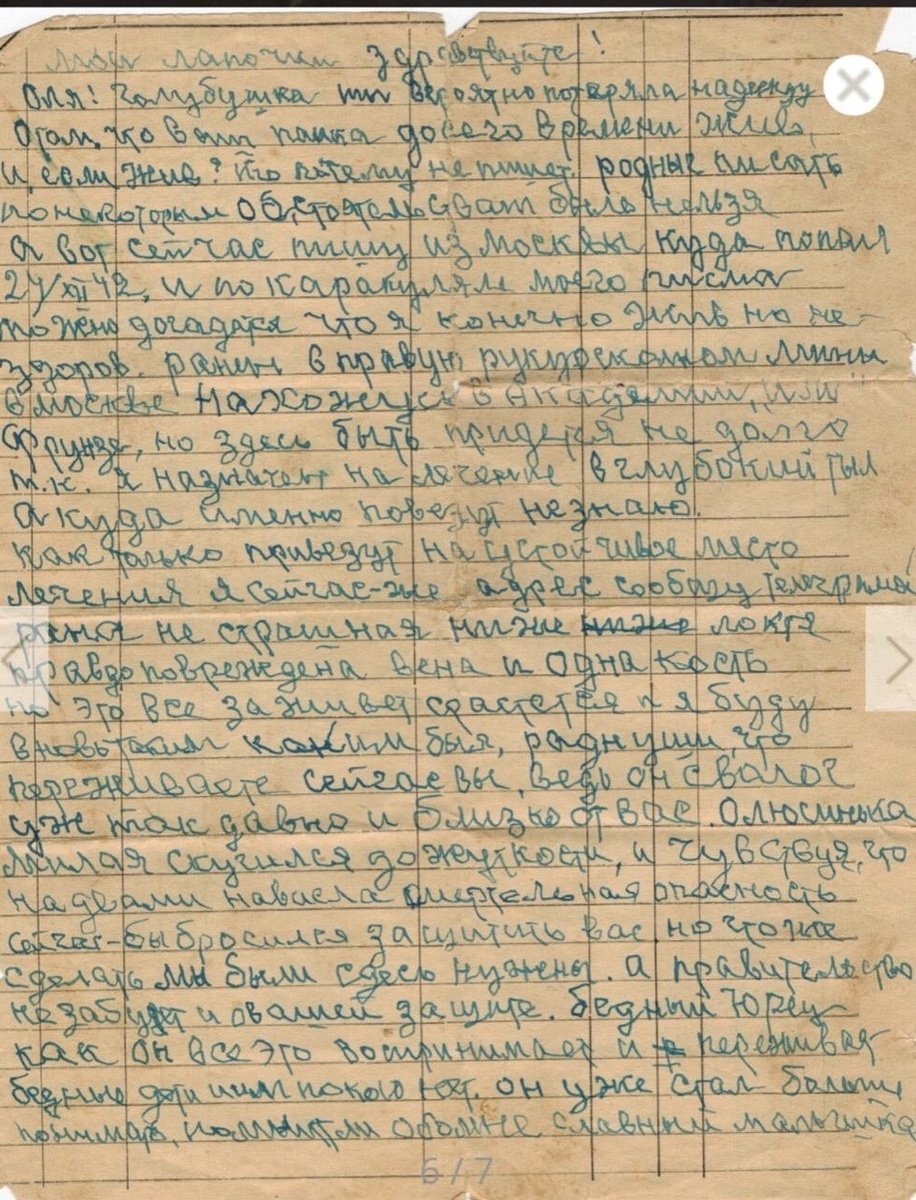 Мои лапочки здравствуйте!
Оля! Голубушка ты вероятно потеряла надежду
Отом, что ваш папка досего времени жив,
и если жив? То почему не пишет. родные писать
по некоторым обстоятельствам было нельзя
А вот сейчас пишу из Москвы куда попал
24/XII 42, и по каракулям моего письма
можно догадатся что я конечно жив но не-
здоров. ранен в правую руку осколком мины
в Москве нахожусь в Академии, "или"
Фрунзе, но здесь быть придется не долго
т.к. я назначен на лечение в глубокий тыл
а куда именно повезут незнаю.
как только привезут на устойчивое место
лечения я сейчас-же адрес сообщу телеграмой
рана не страшная ниже ниже локтя
правда повреждена вена и одна кость
но это все заживет срастется и я буду
вновь таким каким был, что
переживаете сейчас вы, ведь он сволоч
уж так давно и близко от вас. Олюсинька
милая скучился до жуткости, и чувствуя, что
над вами нависла смертельная опасность
сейчас-бы бросился защитить вас но чтоже
сделать мы были сдесь нужны. а правительство
не забудет и овашей защите. бедный Юрец
как он все это воспринимает и переживает
бедные дети и им покою нет. он уже стал больше
понимать, помнит ли обомне славный мальчишка
6/7